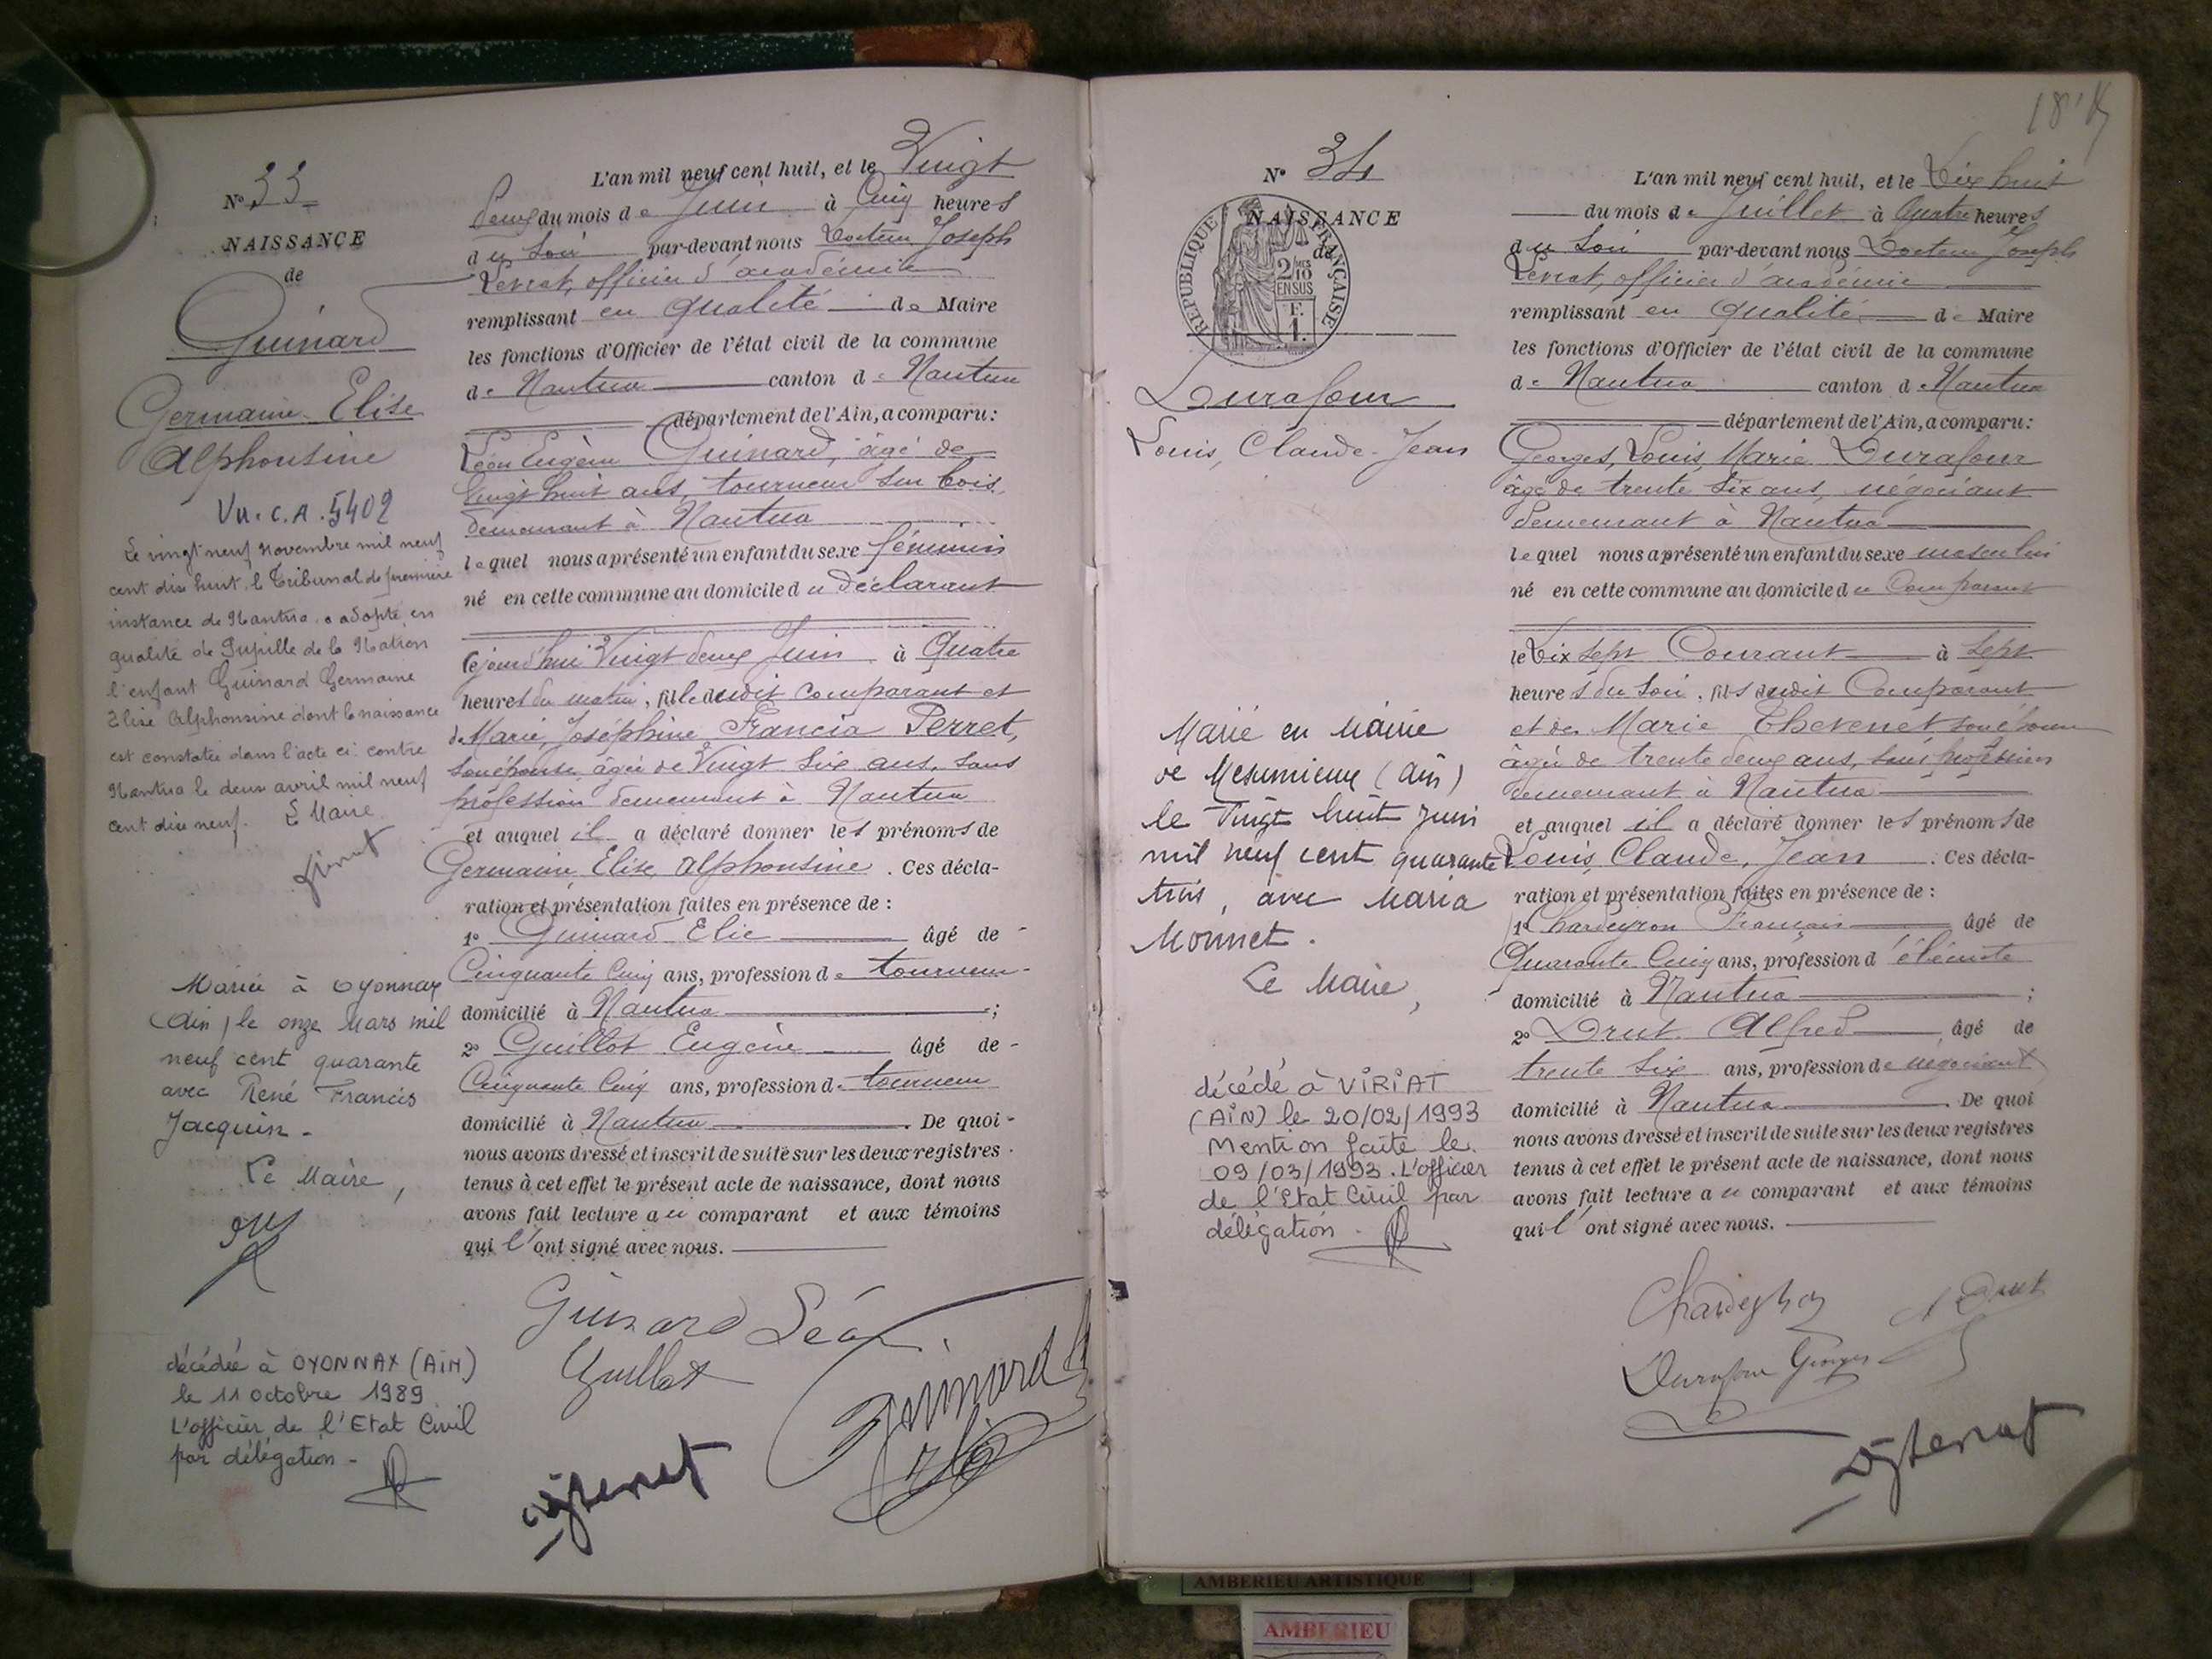 N° 33
NAISSANCE
de
Guinard
Germaine Elise
Alphonsine
Vu. C.A. 5402
Le vingt neuf Novembre mil neuf
cent dix huit, le Tribunal de première
instance de Nantua, a adopté en
qualité de Pupille de la Nation
l'enfant Guinard Germaine
Elise Alphonsine dont la naissance
est constatée dans l'acte ci-contre
Nantua le deux avril mil neuf
cent dix neuf. Le Maire
Mariée à Oyonnax
(Ain) le onze Mars mil
neuf cent quarante
avec René Francis
Jacquin.
Le Maire,
décédée à OYONNAX (AIN)
le 11 octobre 1989
L'officier de l'Etat Civil
par délégation.
L'an mil neuf cent huit, et le Vingt
deux du mois de Juin à Cinq heures
du Soir par-devant nous Docteur Joseph
Levrat, officier d'académie
remplissant en qualité de Maire
les fonctions d'Officier de l'état civil de la commune
de Nantua canton de Nantua
département de l'Ain, a comparu :
Léon Eugène Guinard, âgé de
Vingt huit ans, tourneur sur bois,
demeurant à Nantua
lequel nous a présenté un enfant du sexe féminin
né en cette commune au domicile du déclarant
cejourd'hui Vingt deux Juin à Quatre
heures du matin, fille dudit comparant et
de Marie, Joséphine Francia Perret,
son épouse, âgée de Vingt Six ans, sans
profession demeurant à Nantua
et auquel il a déclaré donner les prénoms de
Germaine Elise Alphonsine. Ces décla-
ration et présentation faites en présence de :
1° Guinard Elie âgé de
Cinquante Cinq ans, profession de tourneur
domicilié à Nantua ;
2° Guillot Eugène âgé de
Cinquante Cinq ans, profession de tourneur
domicilié à Nantua. De quoi
nous avons dressé et inscrit de suite sur les deux registres
tenus à cet effet le présent acte de naissance, dont nous
avons fait lecture au comparant et aux témoins
qui l'ont signé avec nous.
Guinard Léon
Guillot
Guinard
18
N° 34
NAISSANCE
de
REPUBLIQUE FRANÇAISE
2/10 EN SUS
F.
1.
Durafour
Louis, Claude-Jean
Marié en Mairie
de Meximieux (Ain)
le Vingt huit Juin
mil neuf cent quarante
trois, avec Maria
Monnet.
Le Maire,
décédé à VIRIAT
(AIN) le 20/02/1993
Mention faite le
09/03/1993. L'officier
de l'Etat Civil par
délégation.
L'an mil neuf cent huit, et le Dix huit
du mois de Juillet à Quatre heures
du Soir par-devant nous Docteur Joseph
Levrat, officier d'académie
remplissant en qualité de Maire
les fonctions d'Officier de l'état civil de la commune
de Nantua canton de Nantua
département de l'Ain, a comparu :
Georges, Louis, Marie Durafour
âgé de trente Six ans, négociant
demeurant à Nantua
lequel nous a présenté un enfant du sexe masculin
né en cette commune au domicile du Comparant
le Dix Sept Courant à Sept
heures du Soir, fils dudit Comparant
et de Marie Thevenet son épouse
âgée de trente deux ans, sans profession
demeurant à Nantua
et auquel il a déclaré donner les prénoms de
Louis, Claude, Jean. Ces décla-
ration et présentation faites en présence de :
1° Chardeyron François âgé de
Quarante Cinq ans, profession d'ébéniste
domicilié à Nantua ;
2° Drut Alfred âgé de
trente Six ans, profession de négociant
domicilié à Nantua. De quoi
nous avons dressé et inscrit de suite sur les deux registres
tenus à cet effet le présent acte de naissance, dont nous
avons fait lecture au comparant et aux témoins
qui l'ont signé avec nous.
Chardeyron
A Drut
Durafour Georges
AMBERIEU ARTISTIQUE
AMBERIEU